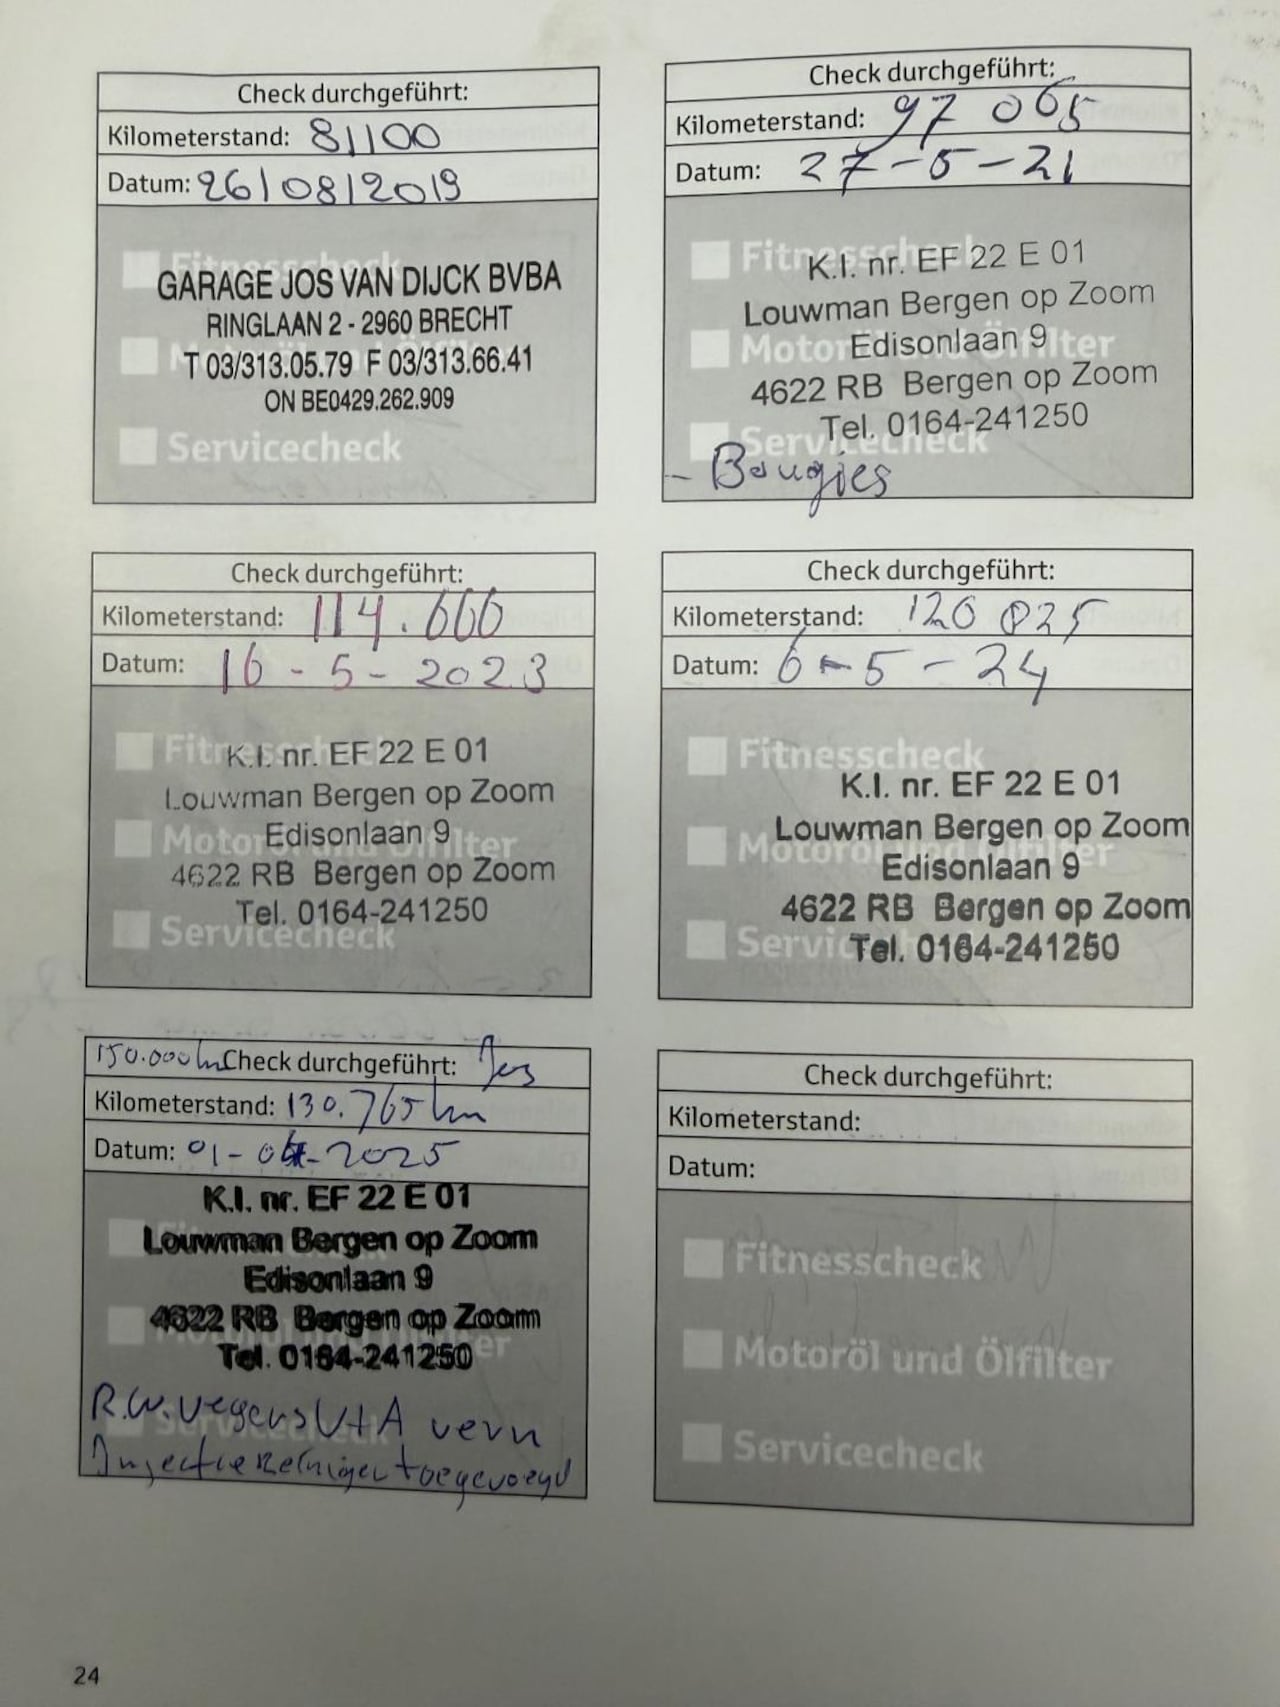 Check durchgeführt:
Kilometerstand: 81100
Datum: 26/08/2019
Fitnesscheck
GARAGE JOS VAN DIJCK BVBA
RINGLAAN 2 - 2960 BRECHT
Motoröl und Ölfilter
T 03/313.05.79 F 03/313.66.41
ON BE0429.262.909
Servicecheck
Check durchgeführt:
Kilometerstand: 97 065
Datum: 27-5-21
Fitnesscheck
K.I. nr. EF 22 E 01
Louwman Bergen op Zoom
Motoröl und Ölfilter
Edisonlaan 9
4622 RB Bergen op Zoom
Tel. 0164-241250
Servicecheck
- Bougies
Check durchgeführt:
Kilometerstand: 114.666
Datum: 16-5-2023
Fitnesscheck
K.I. nr. EF 22 E 01
Louwman Bergen op Zoom
Edisonlaan 9
Motoröl und Ölfilter
4622 RB Bergen op Zoom
Tel. 0164-241250
Servicecheck
Check durchgeführt:
Kilometerstand: 120 825
Datum: 6-5-24
Fitnesscheck
K.I. nr. EF 22 E 01
Louwman Bergen op Zoom
Motoröl und Ölfilter
Edisonlaan 9
4622 RB Bergen op Zoom
Servicecheck
Tel. 0164-241250
150.000km Check durchgeführt:
Kilometerstand: 130.765km
Datum: 01-04-2025
K.I. nr. EF 22 E 01
Fitnesscheck
Louwman Bergen op Zoom
Edisonlaan 9
4622 RB Bergen op Zoom
Motoröl und Ölfilter
Tel. 0164-241250
R.W. wegers V+A vern
Servicecheck
Injectie Reiniger toegevoegd
Check durchgeführt:
Kilometerstand:
Datum:
Fitnesscheck
Motoröl und Ölfilter
Servicecheck
24